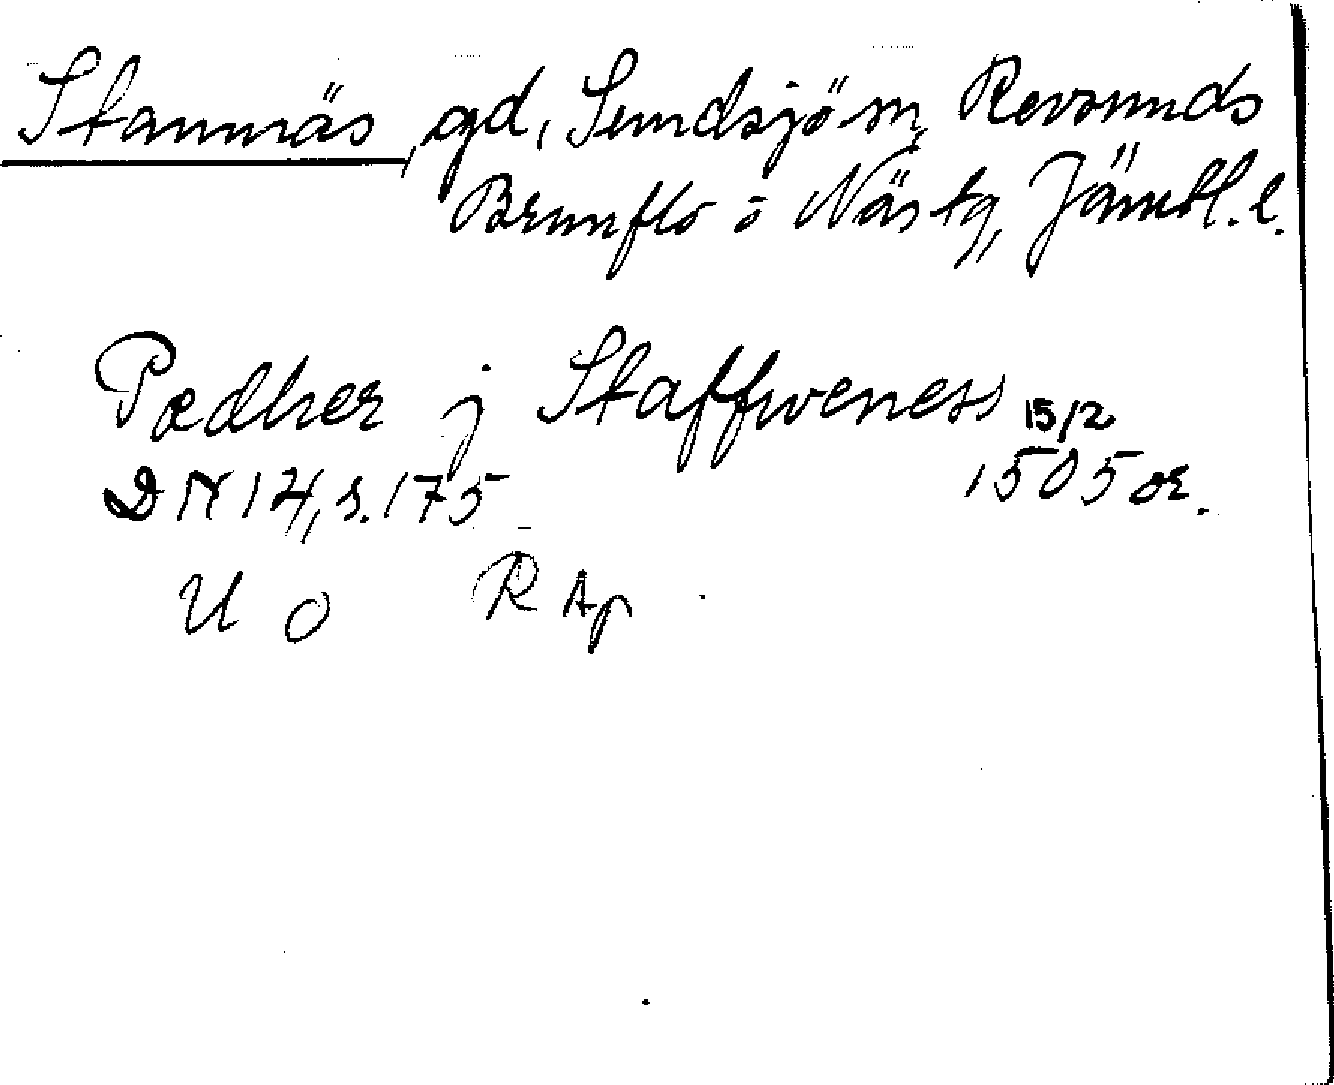 Stamnäs, gd, Sundsjö sn, Revsunds
Brunflo o Näs tg, Jämtl. l.
Pædher j Staffweness 15/2
DN 14, s. 175 1505 or.
U O R Ap